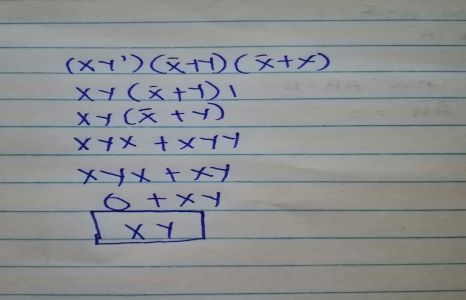 (xy')(x̄+y)(x̄+x)
xy(x̄+y)1
xy(x̄+y)
xyx + xyy
xyx + xy
0 + xy
xy